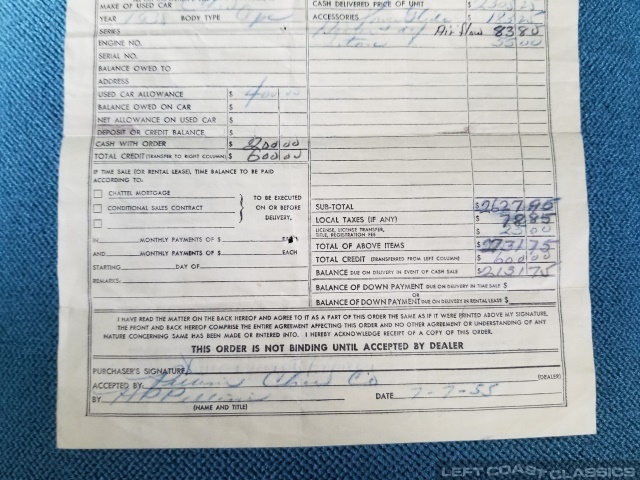 MAKE OF USED CAR
CASH DELIVERED PRICE OF UNIT $
YEAR BODY TYPE
ACCESSORIES
SERIES
Air flow 83 80
ENGINE NO.
SERIAL NO.
BALANCE OWED TO
ADDRESS
USED CAR ALLOWANCE $ 400 00
BALANCE OWED ON CAR $
NET ALLOWANCE ON USED CAR $
DEPOSIT OR CREDIT BALANCE $
CASH WITH ORDER $ 200 00
TOTAL CREDIT (TRANSFER TO RIGHT COLUMN) $ 600 00
IF TIME SALE (OR RENTAL LEASE), TIME BALANCE TO BE PAID
ACCORDING TO:
CHATTEL MORTGAGE
CONDITIONAL SALES CONTRACT
TO BE EXECUTED
ON OR BEFORE
DELIVERY,
IN MONTHLY PAYMENTS OF $ EACH
AND MONTHLY PAYMENTS OF $ EACH
STARTING DAY OF
REMARKS:
SUB-TOTAL $ 2627 90
LOCAL TAXES (IF ANY) $ 78 85
LICENSE, LICENSE TRANSFER,
TITLE, REGISTRATION FEE $ 25 00
TOTAL OF ABOVE ITEMS $ 2731 75
TOTAL CREDIT (TRANSFERRED FROM LEFT COLUMN) $ 600 00
BALANCE DUE ON DELIVERY IN EVENT OF CASH SALE $ 2131 75
BALANCE OF DOWN PAYMENT DUE ON DELIVERY IN TIME SALE $
OR
BALANCE OF DOWN PAYMENT DUE ON DELIVERY IN RENTAL LEASE $
I HAVE READ THE MATTER ON THE BACK HEREOF AND AGREE TO IT AS A PART OF THIS ORDER THE SAME AS IF IT WERE PRINTED ABOVE MY SIGNATURE.
THE FRONT AND BACK HEREOF COMPRISE THE ENTIRE AGREEMENT AFFECTING THIS ORDER AND NO OTHER AGREEMENT OR UNDERSTANDING OF ANY
NATURE CONCERNING SAME HAS BEEN MADE OR ENTERED INTO. I HEREBY ACKNOWLEDGE RECEIPT OF A COPY OF THIS ORDER.
THIS ORDER IS NOT BINDING UNTIL ACCEPTED BY DEALER
PURCHASER'S SIGNATURE X
ACCEPTED BY Co (DEALER)
BY DATE 7-7-55
(NAME AND TITLE)
LEFT COAST CLASSICS